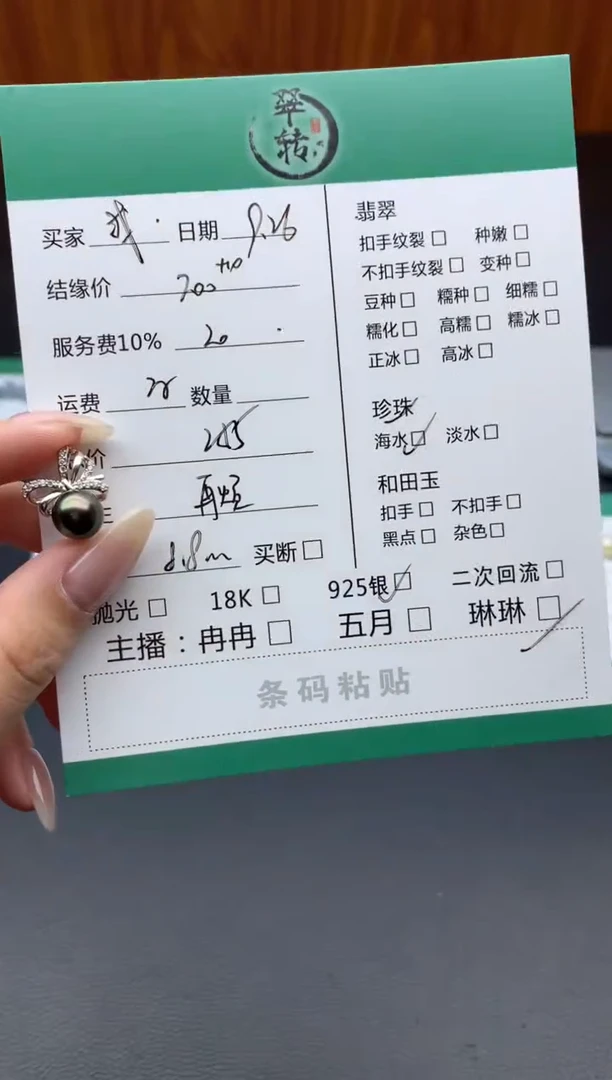 翠
转
买家 日期 9.26
结缘价 200
服务费10% 20
运费 数量
价 245
8.8m 买断
抛光 18K 925银 二次回流
主播：冉冉 五月 琳琳
条码粘贴
翡翠
扣手纹裂 种嫩
不扣手纹裂 变种
豆种 糯种 细糯
糯化 高糯 糯冰
正冰 高冰
珍珠
海水 淡水
和田玉
扣手 不扣手
黑点 杂色